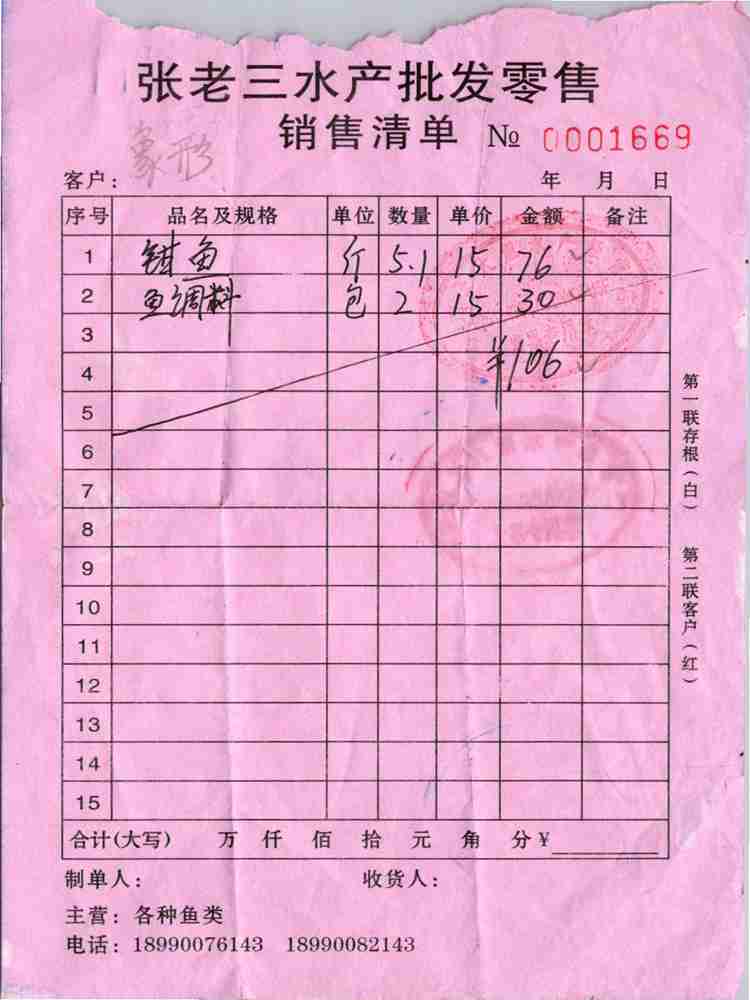 张老三水产批发零售
销售清单 № 0001669
象形
客户: 年 月 日
序号 品名及规格 单位 数量 单价 金额 备注
1 钳鱼 斤 5.1 15 76
2 鱼调料 包 2 15 30
3
4 ¥106
5
6
7
8
9
10
11
12
13
14
15
合计(大写) 万 仟 佰 拾 元 角 分¥
制单人: 收货人:
主营: 各种鱼类
电话: 18990076143 18990082143
第一联存根(白) 第二联客户(红)